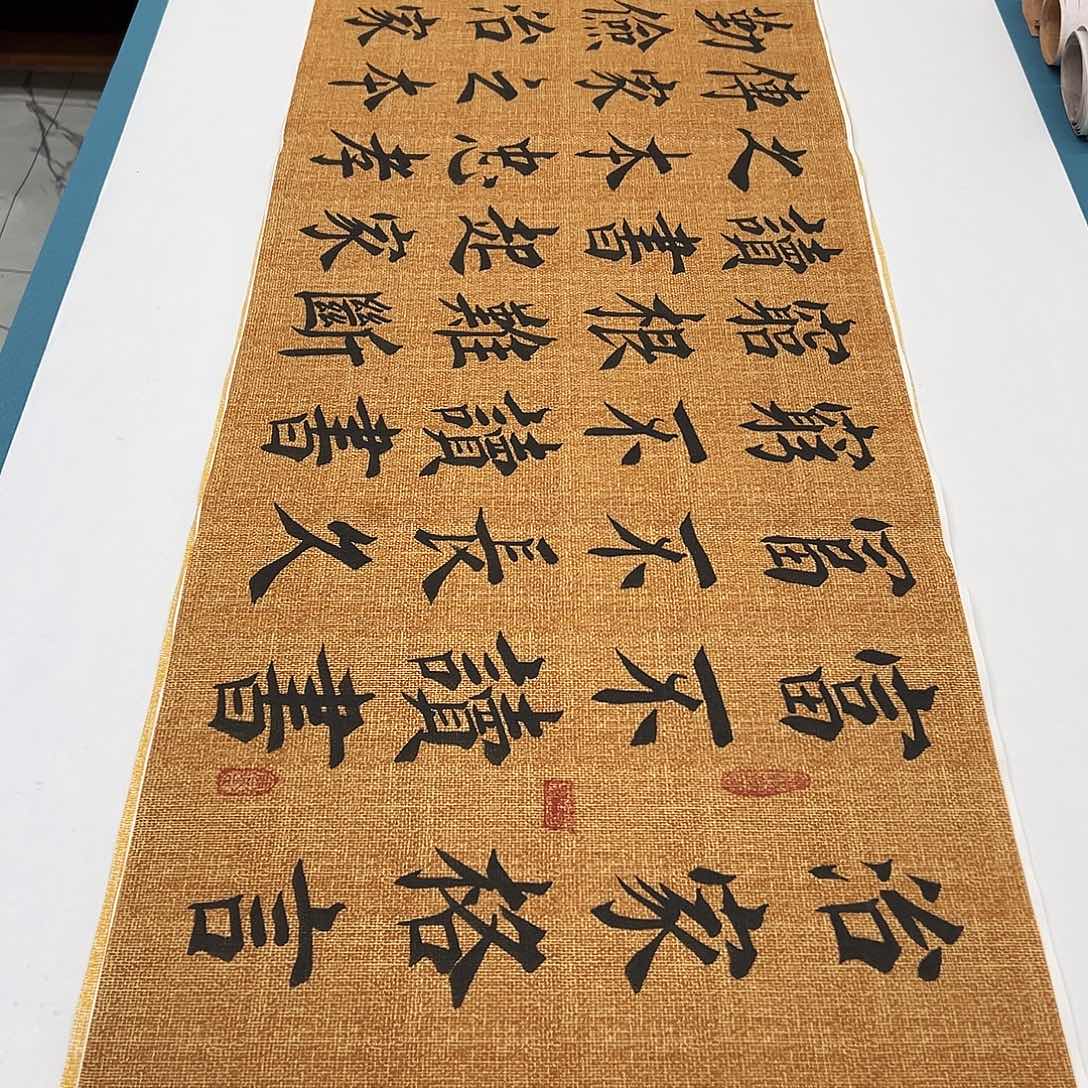 治家格言
富不讀書
富不長久
窮不讀書
窮根難斷
讀書起家
之本忠孝
傳家之本
勤儉治家